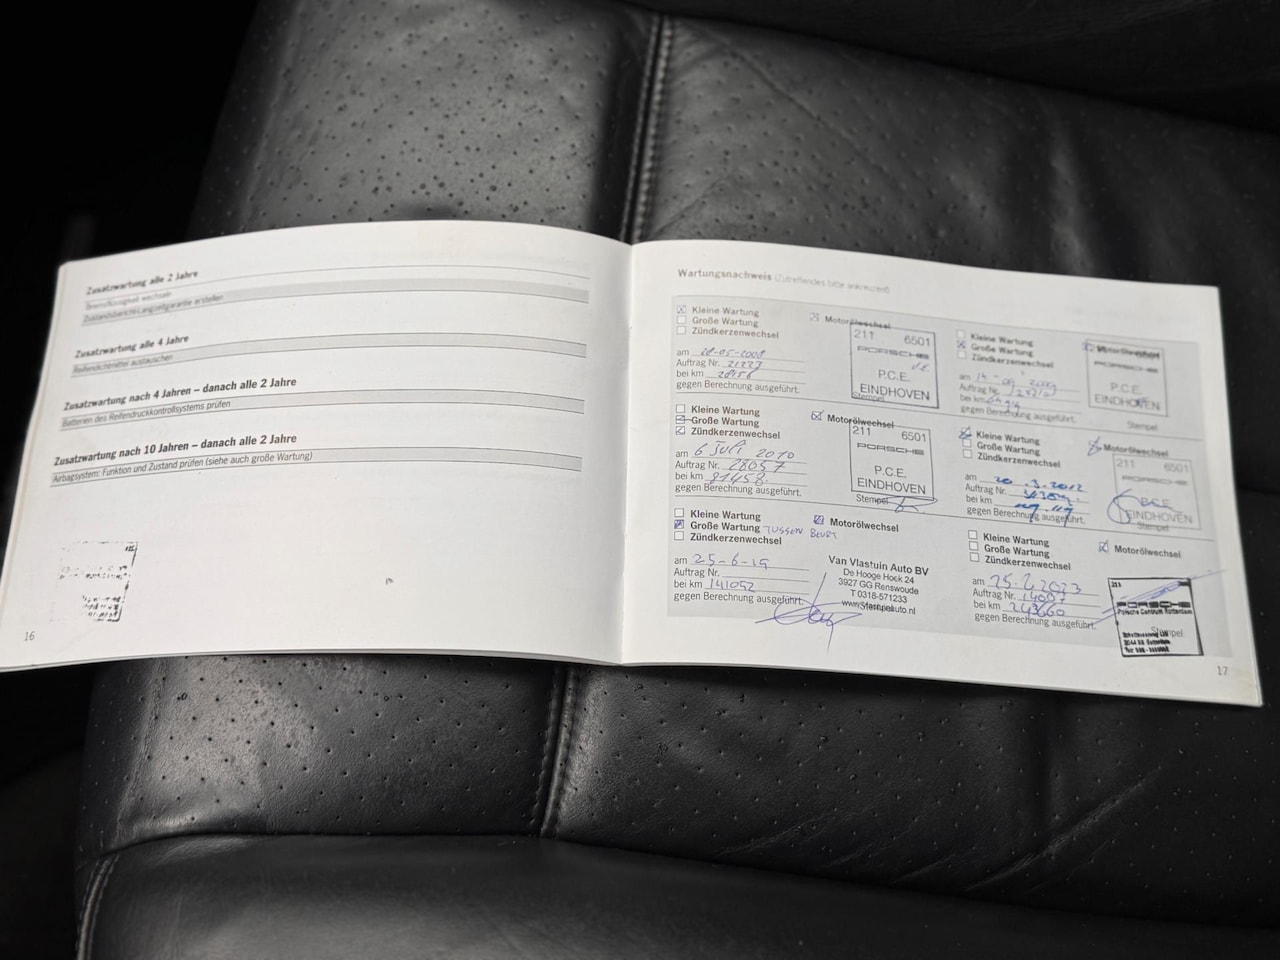 Zusatzwartung alle 2 Jahre
Bremsflüssigkeit wechseln
Zustandsbericht-Langzeitgarantie erstellen
Zusatzwartung alle 4 Jahre
Reifendichtmittel austauschen
Zusatzwartung nach 4 Jahren – danach alle 2 Jahre
Batterien des Reifendruckkontrollsystems prüfen
Zusatzwartung nach 10 Jahren – danach alle 2 Jahre
Airbagsystem: Funktion und Zustand prüfen (siehe auch große Wartung)
16
Wartungsnachweis (Zutreffendes bitte ankreuzen)
Kleine Wartung
Große Wartung
Zündkerzenwechsel
Motorölwechsel
am 28-05-2008
Auftrag Nr. 21223
bei km
gegen Berechnung ausgeführt.
211 6501
PORSCHE
P.C.E.
EINDHOVEN
Stempel
Kleine Wartung
Große Wartung
Zündkerzenwechsel
Motorölwechsel
am
Auftrag Nr.
bei km
gegen Berechnung ausgeführt.
PORSCHE
P.C.E.
EINDHOVEN
Stempel
Kleine Wartung
Große Wartung
Zündkerzenwechsel
Motorölwechsel
am 6 Juli 2010
Auftrag Nr. 28057
bei km 81458
gegen Berechnung ausgeführt.
211 6501
PORSCHE
P.C.E.
EINDHOVEN
Stempel
Kleine Wartung
Große Wartung
Zündkerzenwechsel
Motorölwechsel
am 20.3.2012
Auftrag Nr.
bei km
gegen Berechnung ausgeführt.
211 6501
PORSCHE
P.C.E.
EINDHOVEN
Stempel
Kleine Wartung
Große Wartung TUSSEN BEURT
Zündkerzenwechsel
Motorölwechsel
am 25-6-19
Auftrag Nr.
bei km 141092
gegen Berechnung ausgeführt.
Van Vlastuin Auto BV
De Hooge Hoek 24
3927 GG Renswoude
T 0318-571233
Stempel
Kleine Wartung
Große Wartung
Zündkerzenwechsel
Motorölwechsel
am
Auftrag Nr.
bei km
gegen Berechnung ausgeführt.
211
PORSCHE
Porsche Centrum Rotterdam
Stempel
17